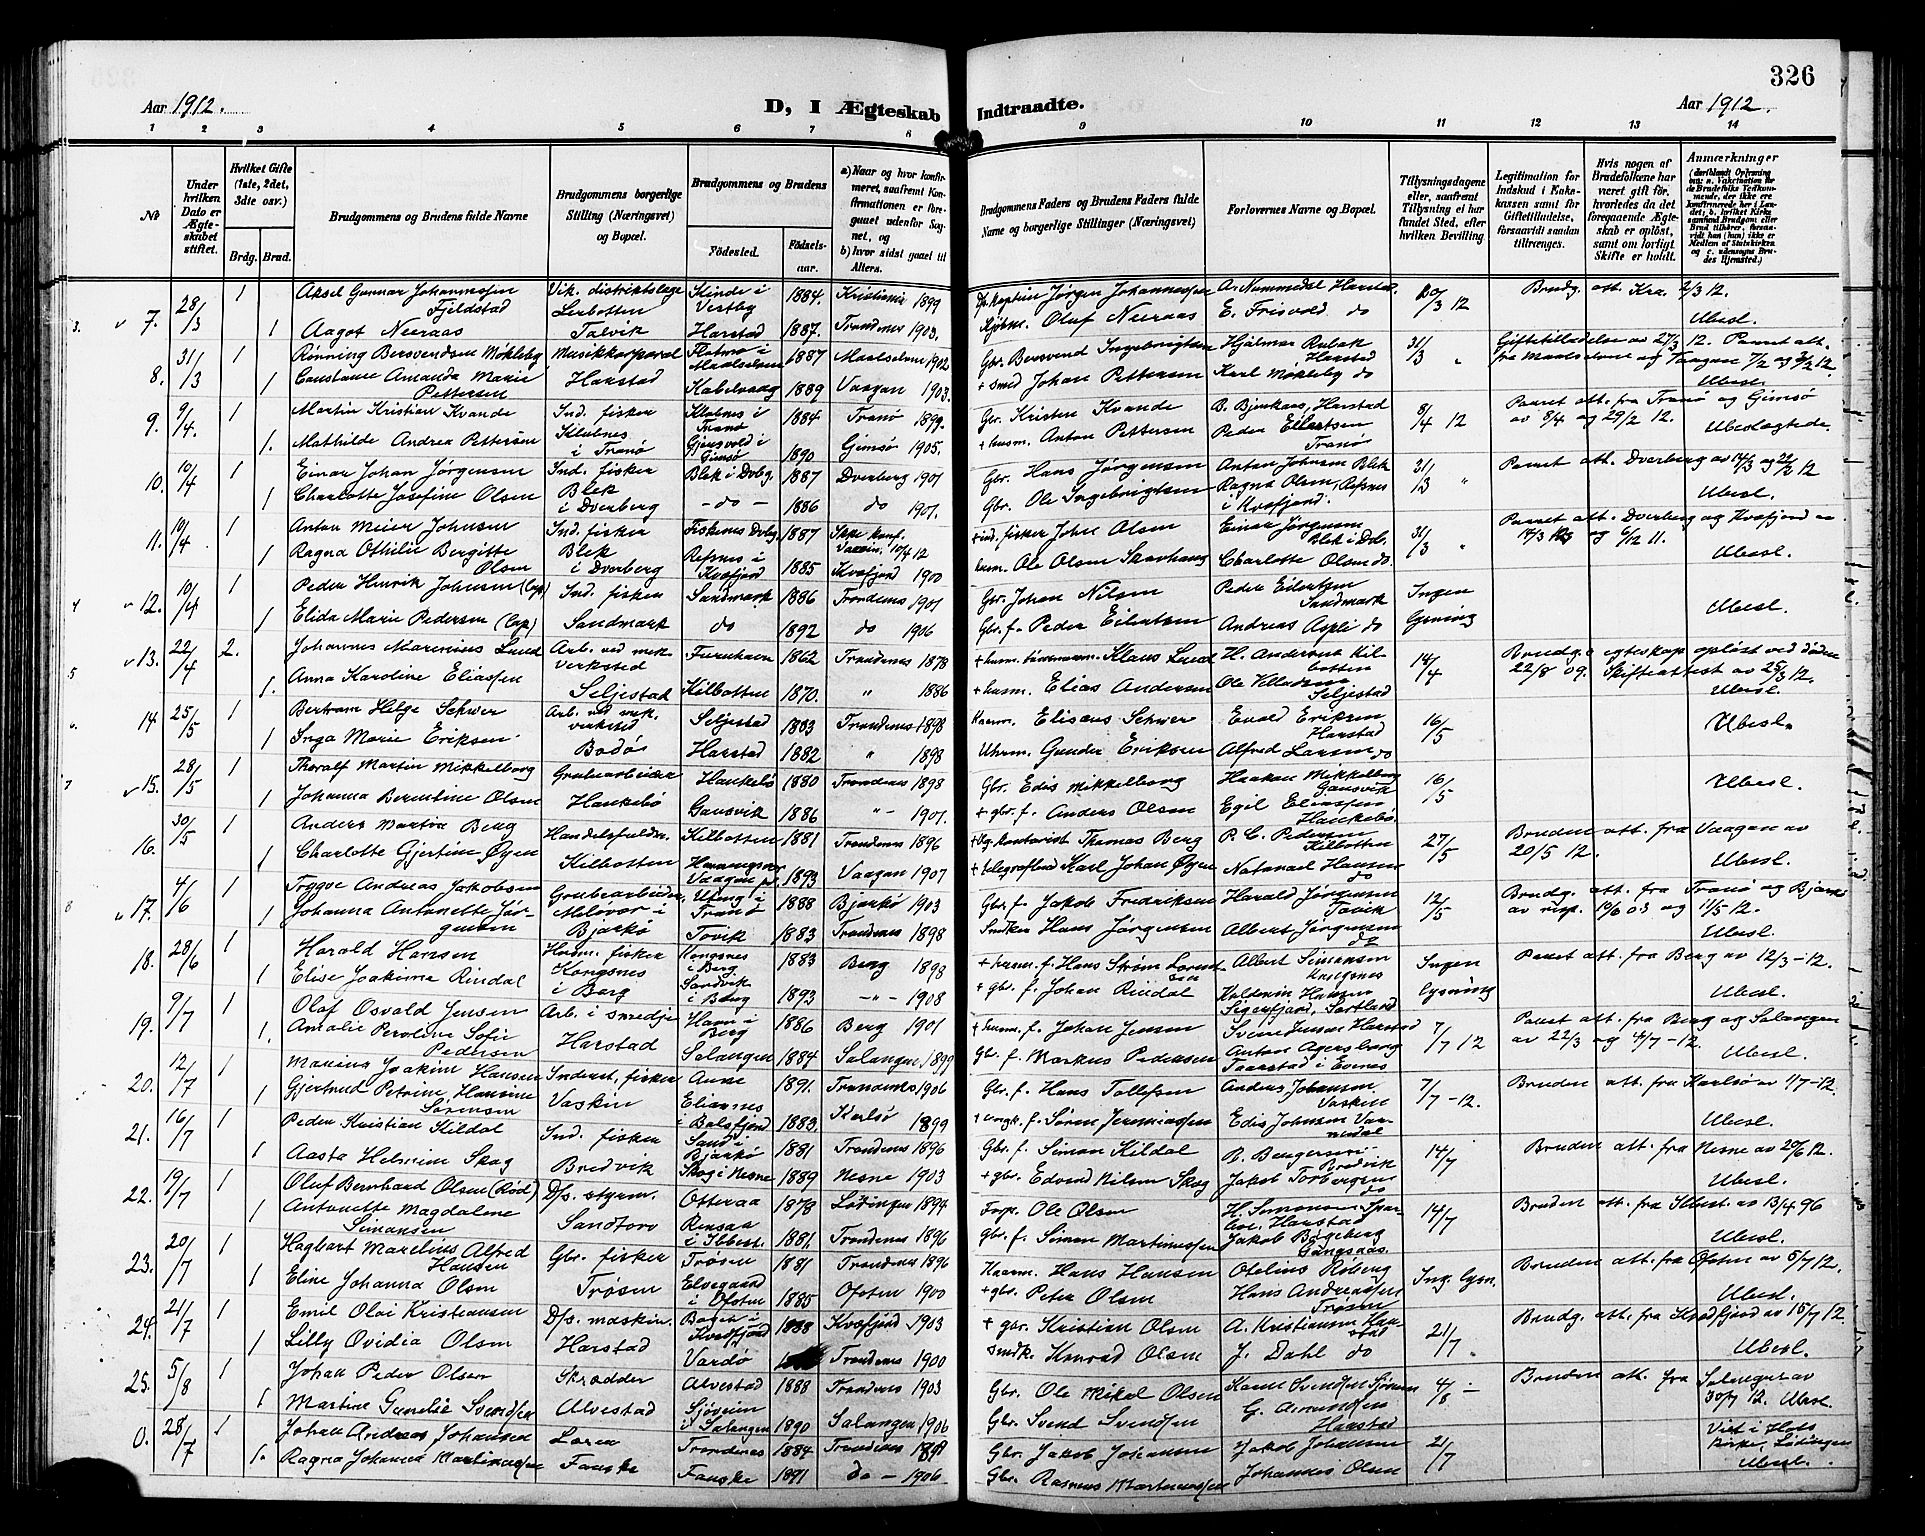 326
Aar 1912.
D, I Ægteskab Indtraadte.
Aar 1912.
1 2 3 4 5 6 7 8 9 10 11 12 13 14
No
Under hvilken Dato er Ægteskabet stiftet.
Hvilket Gifte (1ste, 2det, 3die osv.)
Brdg. Brud.
Brudgommens og Brudens fulde Navne
Brudgommens borgerlige Stilling (Næringsvei) og Bopæl.
Brudgommens og Brudens
Fødested.
Fødselsaar.
a) Naar og hvor konfirmeret, saafremt Konfirmationen er foregaaet udenfor Sognet, og
b) hvor sidst gaaet til Alters.
Brudgommens Faders og Brudens Faders fulde Navne og borgerlige Stillinger (Næringsvei)
Forlovernes Navne og Bopæl.
Tillysningsdagene eller, saafremt Tillysning ei har fundet Sted, efter hvilken Bevilling.
Legitimation for Indskud i Kokskassen samt for Giftetilladelse, forsaavidt saadan tiltrænges.
Hvis nogen af Brudefolkene har været gift før, hvorledes da det foregaaende Ægteskab er opløst, samt om lovligt Skifte er holdt.
Anmærkninger
7. 28/3 1 Aksel Gunnar Johannessen Fjeldstad Vik. distriktslæge Kinde i Vestby 1884. Kristiania 1899 Jørgen Johannessen A. Nummedal Harstad 12 Brudg. att. Kra. 2/3 12.
1 Aagot Neeraas Talvik Harstad 1887. Trondenes 1903. Oluf Neeraas E. Frisvold do Ubesl.
8. 31/3 1 Rønning Bersvendsen Møkleby Musikkorporal Maalselven 1887 Maalselven 1902 Gbr. Bersvend Ingebrigtsen Hjalmar Harstad 31/3 " Giftetilladelse av 27/3 12. Parret att. fra Maalselven og Vaagan 7/2 og 3/2 12.
1 Constance Amanda Marie Pettersen Harstad Kabelvaag 1889 Vaagan 1903. + smed Johan Pettersen Karl Møkleby do Ubesl.
9. 9/4. 1 Martin Kristian Kvande Ind. fisker Klubnes i Tranø 1884 Tranø 1899. Gbr. Kristen Kvande B. Bjerkaas, Harstad 8/4 12 Parret att. fra Tranø og Gimsø av 8/4 og 29/2 12.
1. Mathilde Andrea Pettersen Klubnes i Tranø i Gimsø 1890 Gimsø 1905. + husm. Anton Pettersen Peder Eilertsen Tranø Ubeslægtede.
10. 10/4 1 Einar Johan Jørgensen Ind. fisker Blek i Dvbg. 1887 Dverberg 1901 Gbr. Hans Jørgensen Anton Johnsen Blek 31/3 " Parret att. Dverberg av 14/3 og 22/2 12
1 Charlotte Josefine Olsen Blek i Dverberg – do – 1886 do 1901. Gbr. Ole Ingebrigtsen Ragna Olsen, Refsnes i Kvæfjord. Ubesl.
11. 10/4 1 Anton Meier Johnsen Ind. fisker Fiskenes Dvbg. 1887 Ikke konf. Vaccin. 10/4 12 + ind. fisker John Olsen Einar Jørgensen Blek i Dvb. 31/3 " Parret att. Dverberg og Kvæfjord av 14/3 12 og 6/12 11.
1 Ragna Othilie Bergitte Olsen Blek i Dverberg Refsnes i Kvæfjord 1885 Kvæfjord 1900 husm. Ole Olsen Skarhaug Charlotte Olsen do Ubesl.
12. 10/4 1 Peder Henrik Johnsen (lap) Ind. fisker Sandmark 1886 Trondenes 1901 Gbr. Johan Nilsen Peder Eilertsen Sandmark Ingen lysning
1 Elida Marie Pedersen (lap) Sandmark do 1892 do 1906 Gbr. f. Peder Eilertsen Andreas Aspli do Ubesl.
13. 22/4 2. Johannes Marenius Lund Arb. ved mek. verksted 1862 Trondenes 1878 Klaus Lund H. Andersen Kilbotten 14/4 Brudg. egteskap opløst ved døden 22/8 09. Skifteattest av 25/3 12.
1. Anna Karoline Eliassen Seljestad Kilbotten 1870. " 1886 + husm. Elias Andersen Ole Villadsen Seljestad Ubesl.
14 25/5 1 Bertram Helge Schwer Arb. ved mek. verksted Seljestad 1883 Trondenes 1898 Kaarm. Elisæus Schwer Evald Eriksen Harstad 16/5 Ubesl.
1 Inga Marie Eriksen Bodø Harstad 1882 " 1898 Uhrm. Gunder Eriksen Alfred Larsen do
15. 28/5 1 Thoralf Martin Mikkelborg Grubearbeider Haukebø 1880 Trondenes 1898 Gbr. Edis Mikkelborg Haakon Mikkelborg Gausvik 16/5 Ubesl.
1 Johanna Berntine Olsen Haukebø Gausvik 1886 " 1901. + gbr. f. Anders Olsen Egil Eliassen Haukebø
16. 30/5 1 Anders Martin Berg Handelsfuldm. Kilbotten 1881 Trondenes 1896 kontorist Thomas Berg P. C. Pedersen Kilbotten 27/5 Bruden att. fra Vaagan av 20/5 12.
1 Charlotte Gjertine Øyen Kilbotten Vaagan 1893 Vaagan 1907 + telegrafbud Karl Johan Øyen Natanael Hansen do Ubesl.
17. 4/6 1 Trygve Andreas Jakobsen Grubearbeider i Tranø 1888 Bjarkø 1903 Gbr. f. Jakob Fredriksen Harald Jørgensen Tovik 12/5 Brudg. att. fra Tranø og Bjarkø av resp. 10/6 03 og 11/5 12.
1 Johanna Antonette Jørgensen Meløvær i Bjarkø Tovik 1883 Trondenes 1898 Snedker Hans Jørgensen Albert Jørgensen do Ubesl.
18. 28/6 1 Harald Hansen Husm. fisker Kongsnes i Berg 1883 Berg 1898 + husm. f. Hans Strøm Lorentsen Albert Simonsen Ingen lysning Parret att. fra Berg av 12/3 – 12.
1 Elise Joakima Rindal Kongsnes i Berg Sandvik i Berg 1893 – " – 1908 + gbr. f. Johan Rindal Hansen Sigerfjord, Sortland Ubesl.
19. 9/7 1 Olaf Osvald Jensen Arb. i smedje Havn i Berg 1886 Berg 1901 + husm. f. Johan Jensen Svend Jensen Harstad 7/7 12 Parret att. fra Berg og Salangen av 22/3 og 4/7 – 12.
1. Amalie Peroline Sofie Pedersen Harstad Salangen 1884 Salangen 1899 Gbr. f. Markus Pedersen Anton Agersborg Taarstad i Evenes Ubesl.
20. 12/7 1 Marius Joakim Hansen Inderst, fisker Aune 1891. Trondenes 1906 Gbr. f. Hans Tollefsen Anders Johansen Vaskin 7/7 – 12. Bruden att. fra Karlsø av 1/7 – 12.
1 Gjertrud Petrine Hansine Sørensen Vaskin i Balsfjord 1883. Karlsø 1899 f. Søren Jeremiassen Edis Johnsen Ubesl.
21. 16/7 1 Peder Kristian Kildal Ind. fisker Sand i Bjarkø 1881 Trondenes 1896 Gbr. f. Simon Kildal B. Bengersen Bredvik 14/7 Bruden att. fra Nesne av 29/6 12.
1 Aasta Helmine Skog Bredvik Skog i Nesne 1889 Nesne 1903 + gbr. Edvard Nilsen Skog Jakob Torbergsen do Ubesl.
22. 19/7 1 Oluf Bernhard Olsen (Rød) D/s. styrm. Otteraa 1878 Lødingen 1894 Forp. Ole Olsen H. Simonsen Harstad 14/7 Bruden att. fra Ibbest. av 13/4 96
1 Antonette Magdalene Simonsen Sandtorv Rensaa i Ibbest. 1881. Trondenes 1896 Gbr. f. Simon Martinussen Jakob Bøgeberg Gangsaas. Ubesl.
23. 20/7 1 Hagbart Marelius Alfred Hansen Gbr. fisker Trøsen 1881 Trondenes 1896 Kaarm. Hans Hansen Otelius Røberg Ing. lysn. Bruden att. fra Ofoten av 5/7 12.
1 Eline Johanna Olsen Trøsen Elvegaard i Ofoten 1885 Ofoten 1900 + gbr. Peter Olsen Hans Andreassen Trøsen Ubesl.
24. 21/7 1 Emil Olai Kristiansen D/s. maskin. i Kvæfjord 1888 Kvæfjord 1903 + gbr. Kristian Olsen A. Kristiansen Harstad 21/7 Brudg. att. fra Kvæfjord av 15/7 12.
1 Lilly Ovidia Olsen Harstad Vardø Trondenes 1900 Snedk. Konrad Olsen J. Dahl do Ubesl.
25. 5/8 1 Johan Peder Olsen Skrædder Alvestad 1888 Trondenes 1903 Gbr. Ole Mikal Olsen 4/8 – Bruden att. fra Salangen av 30/7 12. Ubesl.
1 Martine Gurelie Svendsen Alvestad Sjøveien i Salangen 1890 Salangen 1906 Gbr. Svend Svendsen G. Amundsen Harstad
0. 28/7 1 Johan Andreas Johansen Trondenes 1884 Trondenes Gbr. Jakob Johansen Jakob Johansen 21/7 Viet i Hols Kirke, Lødingen
1. Ragna Johanna Martinussen Fauske Fauske 1891 do – 1906 Gbr. Rasmus Martinussen Johannes Olsen Ubesl.